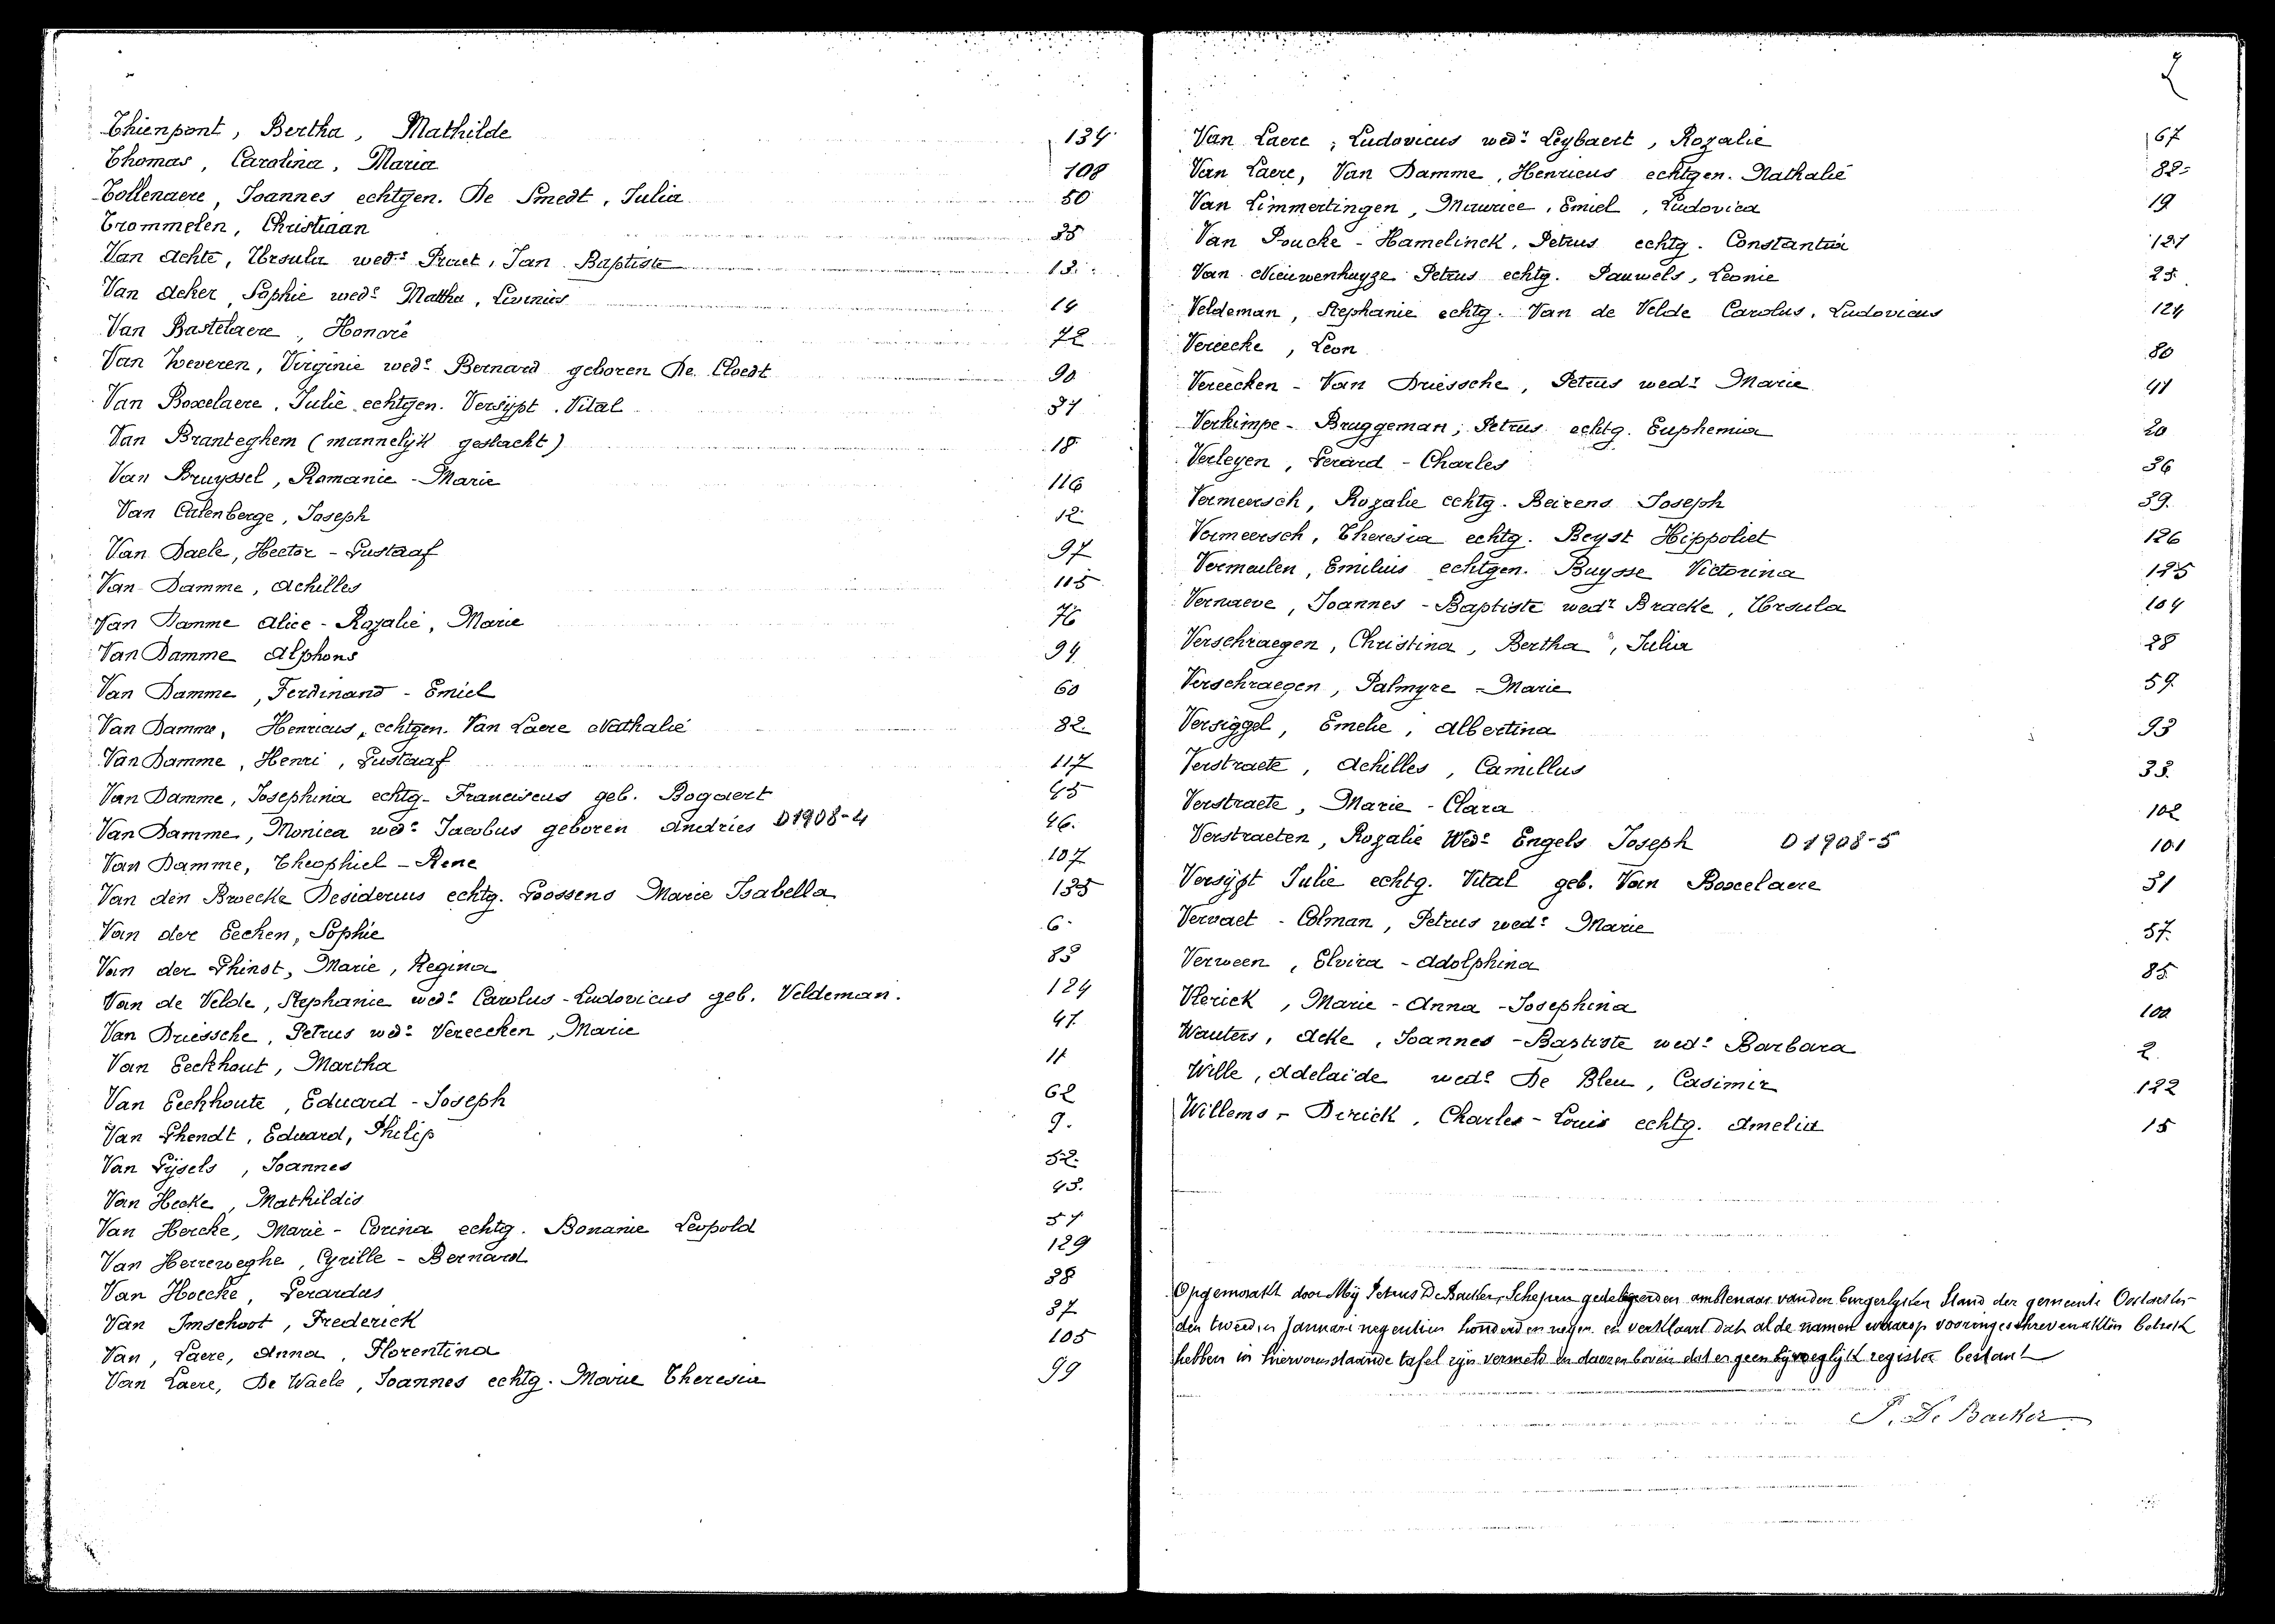 Thienpont, Bertha, Mathilde 134
Thomas, Carolina, Maria 108
Tollenaere, Joannes echtgen. De Smedt, Julia 50
Trommelen, Christiaan 35
Van Achte, Ursula wede Praet, Jan Baptiste 13.
Van Acker, Sophie wede Matthu, Livinus 14
Van Bastelaere, Honoré 72
Van Beveren, Virginie wede Bernard geboren De Cloedt 90
Van Boxelaere, Julie echtgen. Versijpt. Vital 31
Van Branteghem (mannelijk geslacht) 18
Van Bruyssel, Romanie - Marie 116
Van Calenberge, Joseph 12
Van Daele, Hector - Gustaaf 97
Van Damme, Achilles 115
Van Damme Alice - Rozalie, Marie 76
Van Damme Alphons 94
Van Damme, Ferdinand - Emiel 60
Van Damme, Henricus, echtgen. Van Laere Nathalié 82
Van Damme, Henri, Gustaaf 117
Van Damme, Josephina echtg. Franciscus geb. Bogaert 45
Van Damme, Monica wede Jacobus geboren Andries D1908-4 46.
Van Damme, Theophiel - Rene 107
Van den Broecke Desiderius echtg. Goossens Marie Isabella 135
Van der Eecken, Sophie 6
Van der Ghinst, Marie, Regina 83
Van de Velde, Stephanie wede Carolus-Ludovicus geb. Veldeman. 124
Van Driessche, Petrus wedr Vereecken, Marie 41
Van Eeckhout, Martha 11
Van Eeckhoute, Eduard - Joseph 62
Van Ghendt, Eduard, Philip 9.
Van Gijsels, Joannes 52
Van Hecke, Mathildis 43.
Van Hercke, Marie - Corina echtg. Bonanie Leopold 51
Van Herreweghe, Cyrille - Bernard 129
Van Hoecke, Gerardus 38
Van Imschoot, Frederick 37
Van, Laere, Anna, Florentina 105
Van Laere, De Waele, Joannes echtg. Marie Theresia 99
Van Laere, Ludovicus wedr Leybaert, Rozalie 67
Van Laere, Van Damme, Henricus echtgen. Nathalié 82
Van Limmertingen, Maurice, Emiel, Ludovica 19
Van Poucke - Hamelinck, Petrus echtg. Constantia 121
Van Nieuwenhuyze Petrus echtg. Pauwels, Leonie 25
Veldeman, Stephanie echtg. Van de Velde Carolus, Ludovicus 124
Vereecke, Leon 80
Vereecken - Van Driessche, Petrus wedr Marie 41
Verhimpe - Bruggeman, Petrus echtg. Euphemia 20
Verleyen, Gerard - Charles 36
Vermeersch, Rozalie echtg. Beirens Joseph 39.
Vermeersch, Theresia echtg. Beyst Hippoliet 126
Vermeulen, Emilius echtgen. Buysse Victorina 125
Vernaeve, Joannes - Baptiste wedr Bracke, Ursula 104
Verschraegen, Christina, Bertha, Julia 28
Verschraegen, Palmyre - Marie 59
Versiggel, Emelie, Albertina 93
Verstraete, Achilles, Camillus 33.
Verstraete, Marie - Clara 102
Verstraeten, Rozalie Wede Engels Joseph D1908-5 101
Versijpt Julie echtg. Vital geb. Van Boxelaere 31
Vervaet - Colman, Petrus wedr Marie 57.
Verween, Elvira - Adolphina 85
Vlerick, Marie - Anna - Josephina 100
Wauters, Acke, Joannes - Baptiste wedr Barbara 2
Wille, Adelaïde wede De Bleu, Casimir 122
Willems - Dirick, Charles - Louis echtg. Amelia 15
Opgemaakt door Mij Petrus De Backer, Schepen gedelegeerden ambtenaar van den burgerlyken Stand der gemeente Oostacker
den tweeden Januari negentien honderd en negen en verklaart dat al de namen waarop vooringeschreven akten betrek
hebben in hiervorenstaande tafel zijn vermeld en daarenboven dat er geen bijvoeglijk register bestaat
P. De Backer